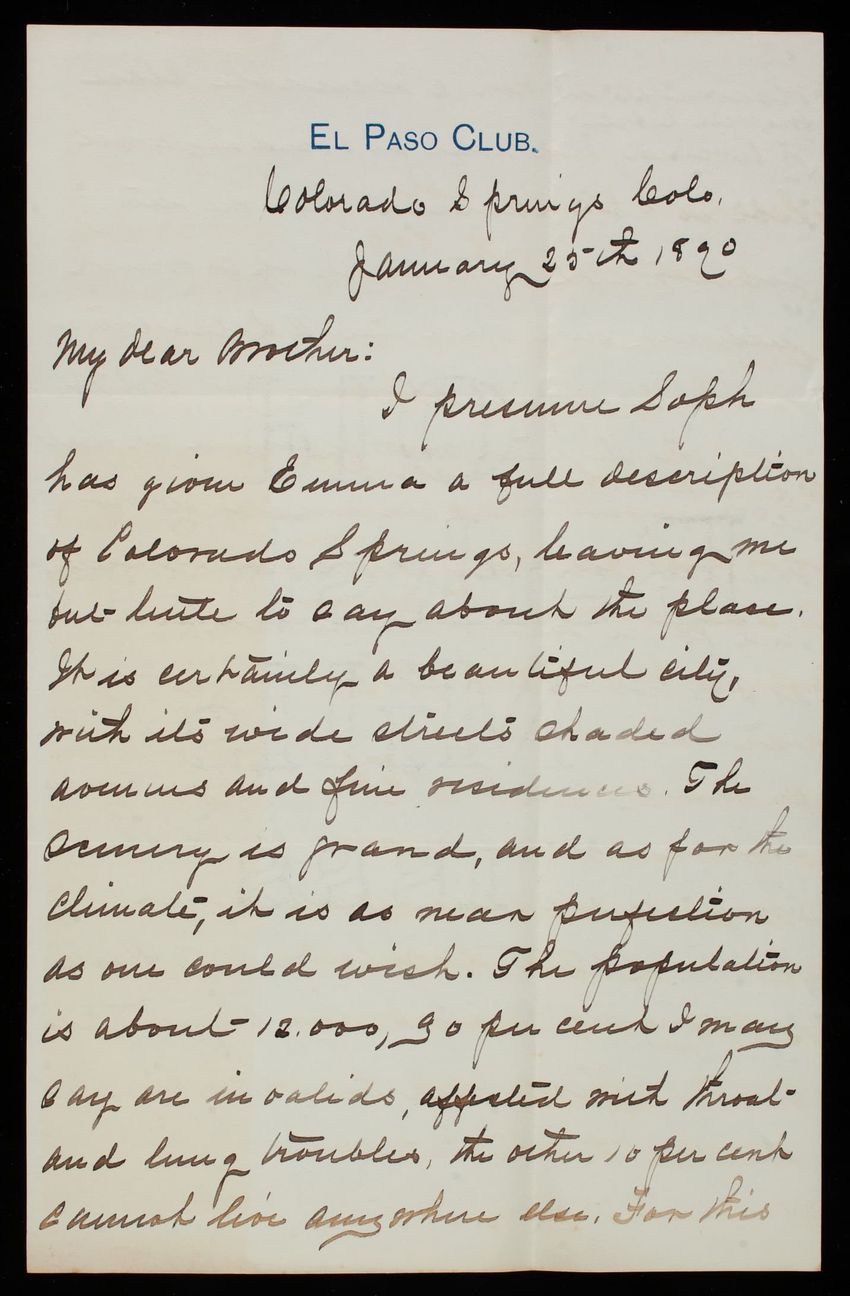 EL PASO CLUB.
Colorado Springs Colo.
January 25th 1890
My dear Brother:
I presume Soph
has given Emma a full description
of Colorado Springs, leaving me
but little to say about the place.
It is certainly a beautiful city,
with its wide streets shaded
avenues and fine residences. The
scenery is grand, and as for the
climate, it is as near perfection
as one could wish. The population
is about 12.000, 90 per cent I may
say are invalids, affected with throat
and lung troubles, the other 10 per cent
cannot live anywhere else. For this